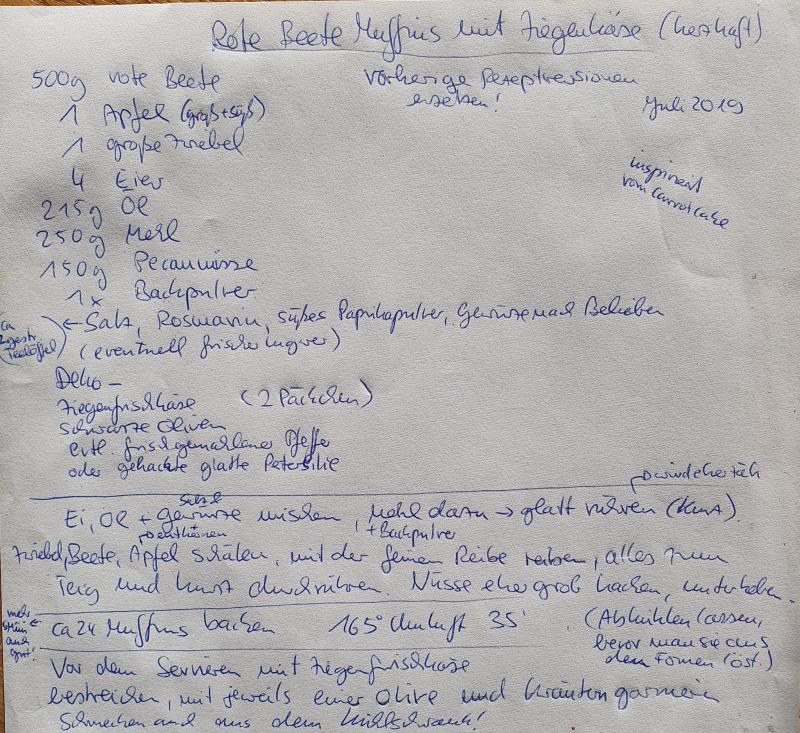 Rote Beete Muffins mit Ziegenkäse (herzhaft)
500g rote Beete
vorherige Rezeptversionen
ersetzen!
Juli 2019
1 Apfel (groß+süß)
1 große Zwiebel
inspiriert
vom carrotcake
4 Eier
215g Öl
250g Mehl
150g Pecannüsse
1x Backpulver
ca
2 gestr.
Teelöffel
← Salz, Rosmarin, süßes Paprikapulver, Gewürze nach Belieben
(eventuell frischer Ingwer)
Deko –
Ziegenfrischkäse (2 Päckchen)
schwarze Oliven
evtl. frischgemahlener Pfeffer
oder gehackte glatte Petersilie
wird eher zäh
Salz &
Ei, Öl + Gewürze mischen, Mehl dazu → glatt rühren (kurz).
+Backpulver
Zwiebel, Beete, Apfel schälen, mit der feinen Reibe reiben, alles zum
Teig und kurz durchrühren. Nüsse eher grob hacken, unterheben.
mehr
auch
gut!
← ca 24 Muffins backen 165° Umluft 35'
(Abkühlen lassen,
bevor man sie aus
den Formen löst.)
Vor dem Servieren mit Ziegenfrischkäse
bestreichen, mit jeweils einer Olive und Kräutern garnieren
Schmecken auch aus dem Kühlschrank!